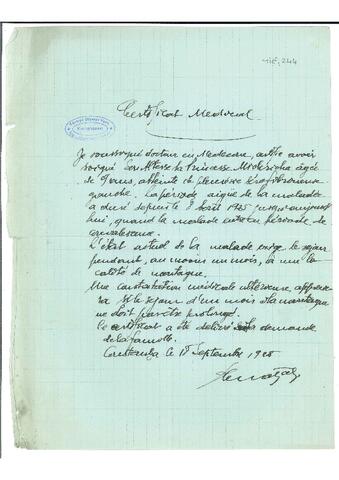 Certificat Medical
Je soussigné docteur en Medecine, atteste avoir
soigné Son Altesse la Princesse
de 9 ans, atteinte de pleuresie
gauche. La période aigue de la maladie
a duré depuis le 8 Août 1925 jusqu'aujourd
hui, quand la malade entre en période de
convalescence.
L'état actuel de la malade exige le sejour
pendant, au moins un mois, à une lo-
calité de montagne.
Une constatation médicale ultérieure
ra si le sejour d'un mois à la montagne
ne doit pas être prolongé.
Ce certificat a été delivré à la demande
de la famille.
Constantza le Septembre 1925